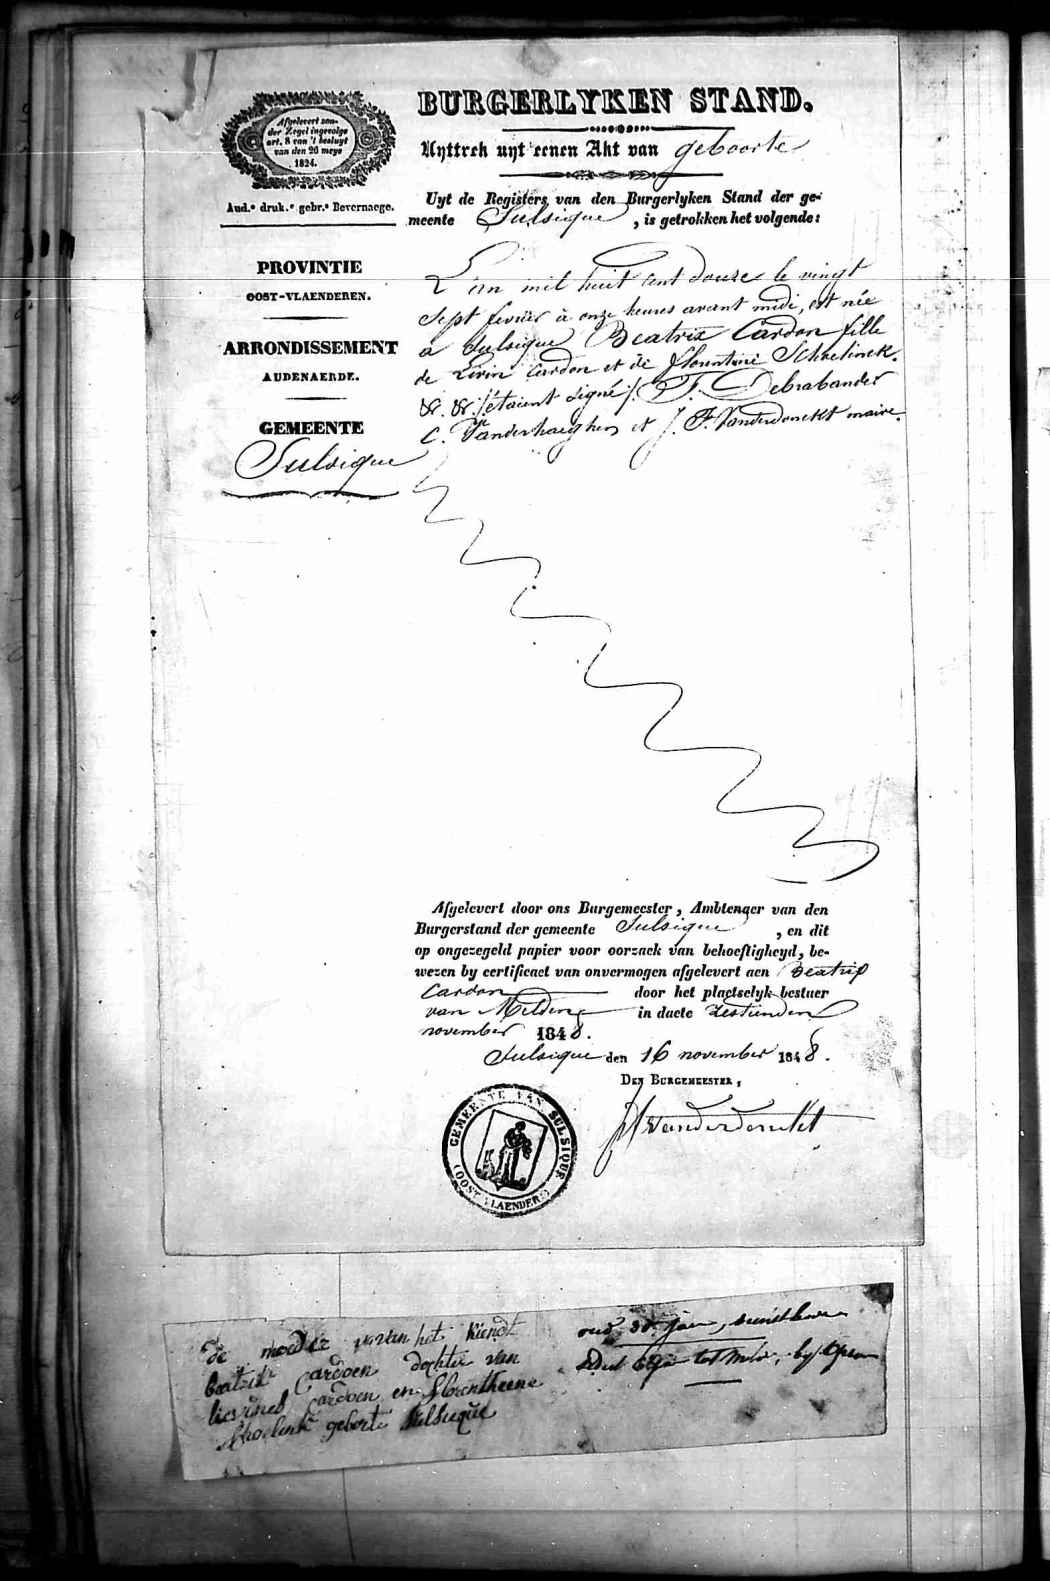 Afgelevert zon-
der Zegel ingevolge
art. 8 van 't besluyt
van den 26 meye
1824.
Aud.e druk.e gebr.s Bevernaege.
BURGERLYKEN STAND.
Uyttrek uyt eenen Akt van geboorte
Uyt de Registers van den Burgerlyken Stand der ge-
meente Sulsique, is getrokken het volgende:
PROVINTIE
OOST-VLAENDEREN.
ARRONDISSEMENT
AUDENAERDE.
GEMEENTE
Sulsique
L'an mil huit cent douze le vingt
Sept fevrier à onze heures avant midi, est née
à Sulsique Beatrix Cardon fille
de Livin Cardon et de florentine Schselinck.
&. &. /:étaient signé/. F. Debrabander
C. Vanderhaeghen et J. F. Vanderdonckt maire.
Afgelevert door ons Burgemeester, Ambtenaer van den
Burgerstand der gemeente Sulsique, en dit
op ongezegeld papier voor oorzack van behoeftigheyd, be-
wezen by certificaet van onvermogen afgelevert aen Beatrix
Cardon door het plaetselyk bestuer
van Melden in daete zestienden
november 1848.
Sulsique den 16 november 1848.
DEN BURGEMEESTER,
JF Vanderdonckt
GEMEENTE VAN SULSIQUE
(OOST VLAENDEREN)
de moeder van het kiendt
Cardoen dochter van
lievines Cardoen en florentheene
geborte Sulsieque
oud 36 Jaer,